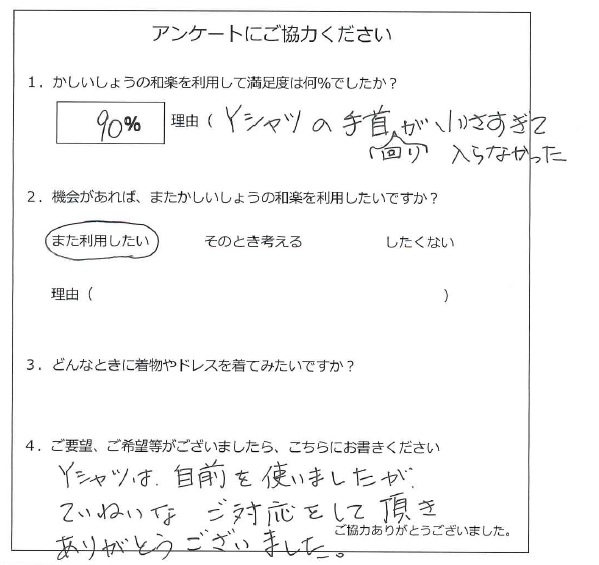 アンケートにご協力ください
1．かしいしょうの和楽を利用して満足度は何%でしたか？
90% 理由（ Yシャツの手首回りが小さすぎて
入らなかった
2．機会があれば、またかしいしょうの和楽を利用したいですか？
また利用したい そのとき考える したくない
理由（ ）
3．どんなときに着物やドレスを着てみたいですか？
4．ご要望、ご希望等がございましたら、こちらにお書きください
Yシャツは、自前を使いましたが
ていねいな ご対応をして頂き
ありがとうございました。
ご協力ありがとうございました。